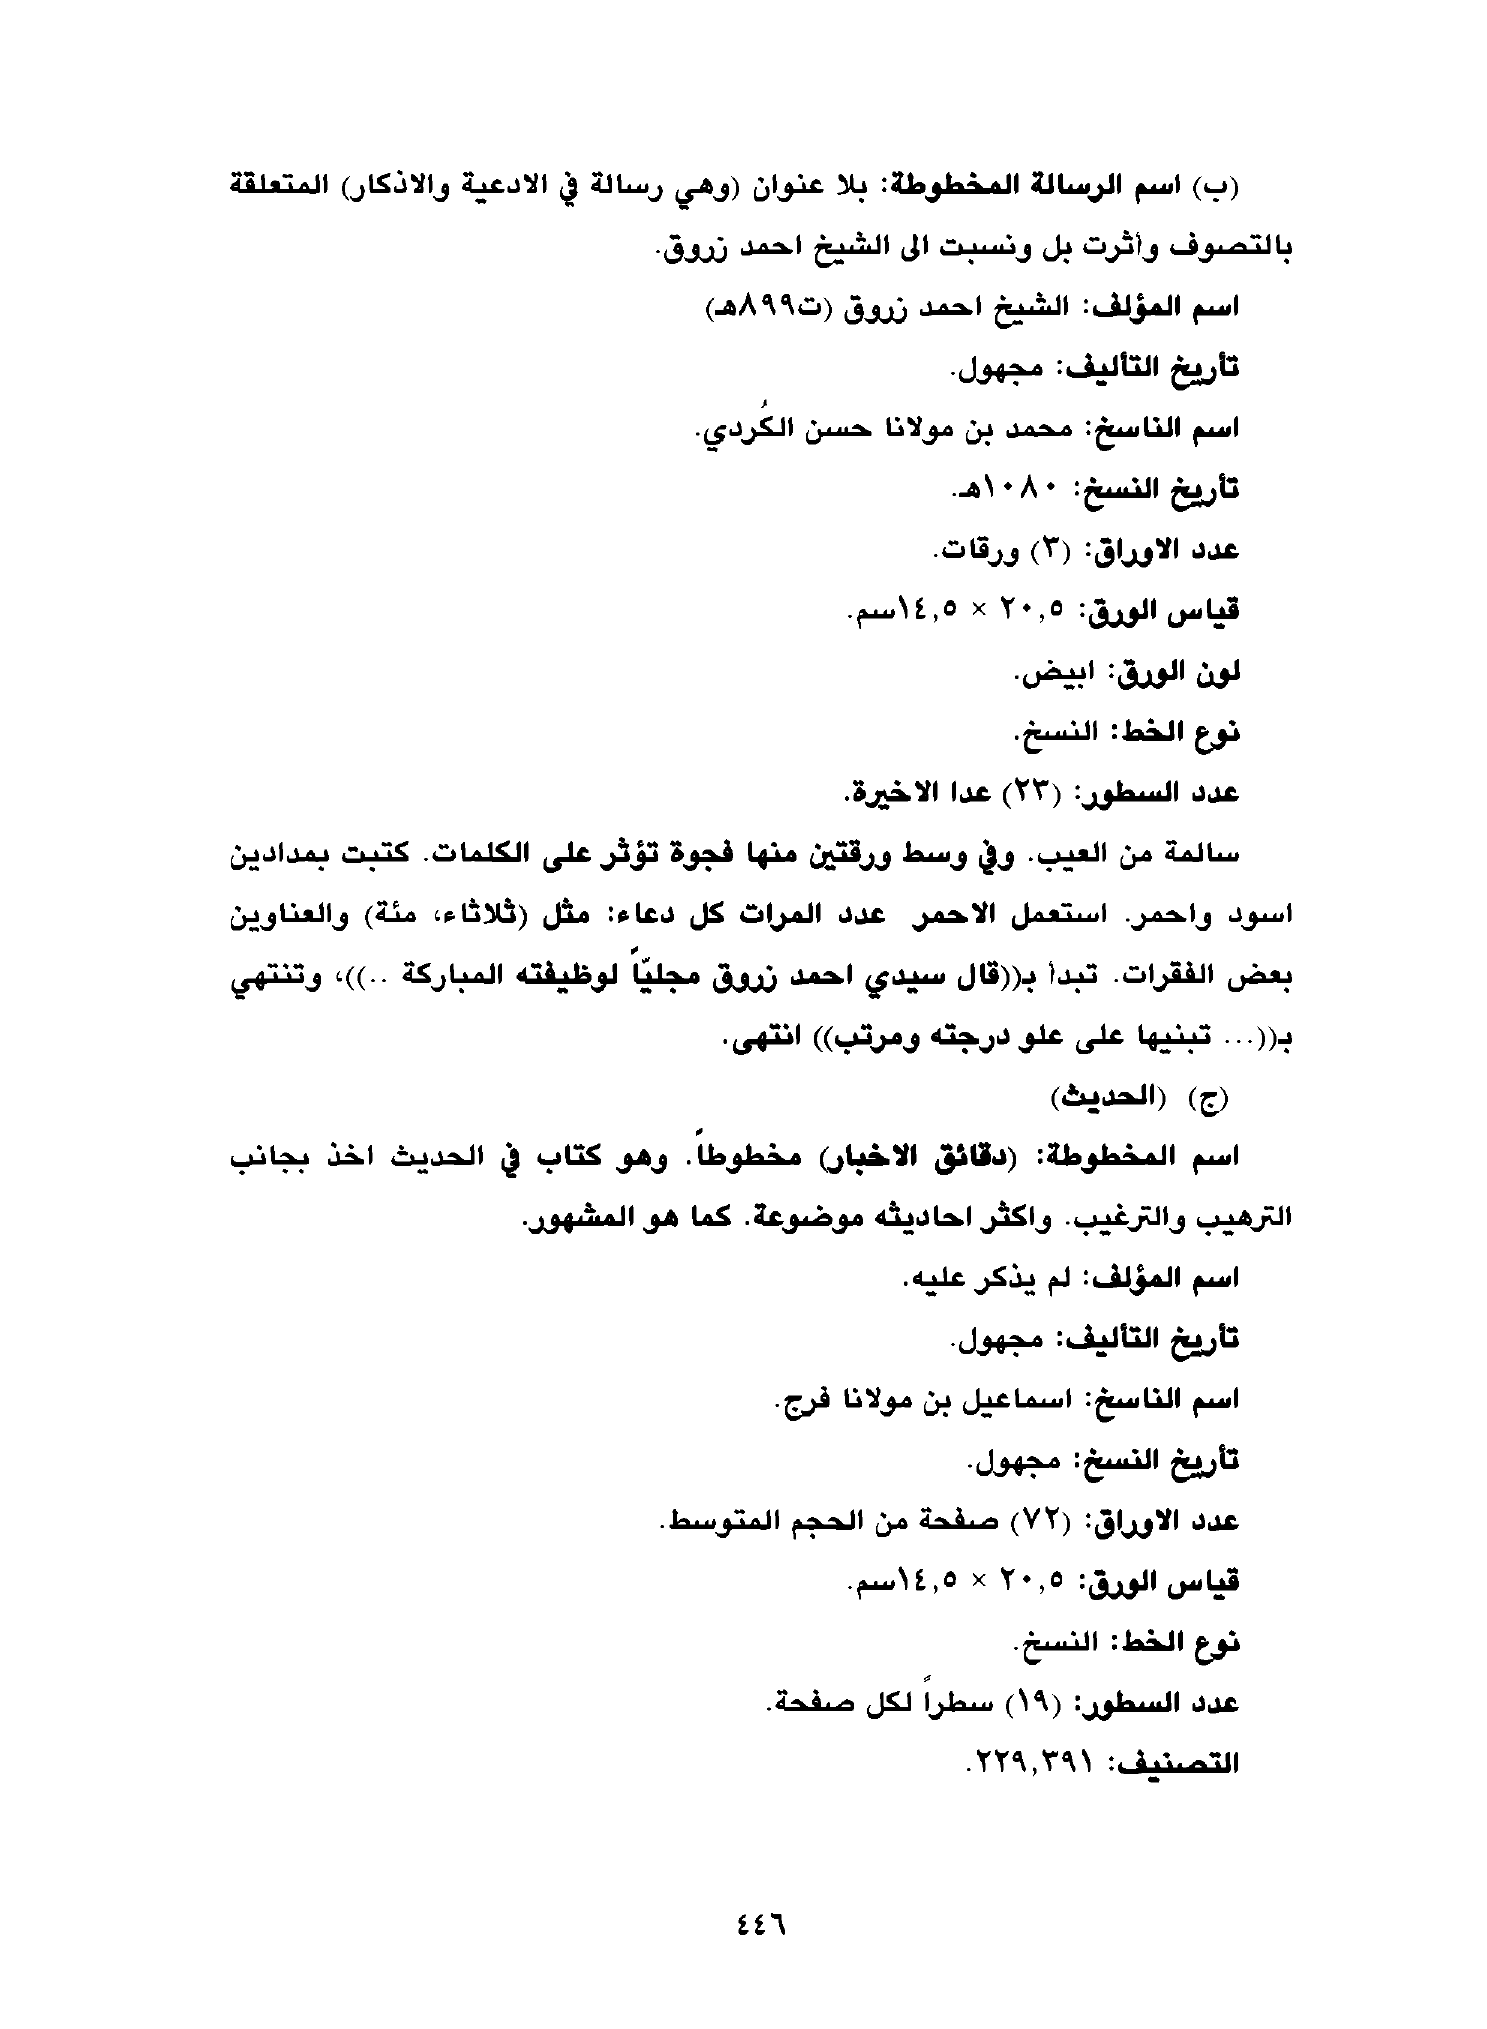 (ب) اسم الرسالة المخطوطة: بلا عنوان (وهي رسالة في الادعية والاذكار) المتعلقة
بالتصوف وأثرت بل ونسبت الى الشيخ احمد زروق.
اسم المؤلف: الشيخ احمد زروق (ت٨٩٩هـ)
تأريخ التأليف: مجهول.
اسم الناسخ: محمد بن مولانا حسن الكُردي.
تأريخ النسخ: ١٠٨٠هـ.
عدد الاوراق: (٣) ورقات.
قياس الورق: ٢٠,٥ × ١٤,٥سم.
لون الورق: ابيض.
نوع الخط: النسخ.
عدد السطور: (٢٣) عدا الاخيرة.
سالمة من العيب. وفي وسط ورقتين منها فجوة تؤثر على الكلمات. كتبت بمدادين
اسود واحمر. استعمل الاحمر عدد المرات كل دعاء: مثل (ثلاثاء، مئة) والعناوين
بعض الفقرات. تبدأ بـ((قال سيدي احمد زروق مجليّاً لوظيفته المباركة ..))، وتنتهي
بـ((... تبنيها على علو درجته ومرتب)) انتهى.
(ج) (الحديث)
اسم المخطوطة: (دقائق الاخبار) مخطوطاً. وهو كتاب في الحديث اخذ بجانب
الترهيب والترغيب. واكثر احاديثه موضوعة. كما هو المشهور.
اسم المؤلف: لم يذكر عليه.
تأريخ التأليف: مجهول.
اسم الناسخ: اسماعيل بن مولانا فرج.
تأريخ النسخ: مجهول.
عدد الاوراق: (٧٢) صفحة من الحجم المتوسط.
قياس الورق: ٢٠,٥ × ١٤,٥سم.
نوع الخط: النسخ.
عدد السطور: (١٩) سطراً لكل صفحة.
التصنيف: ٢٢٩,٣٩١.
٤٤٦